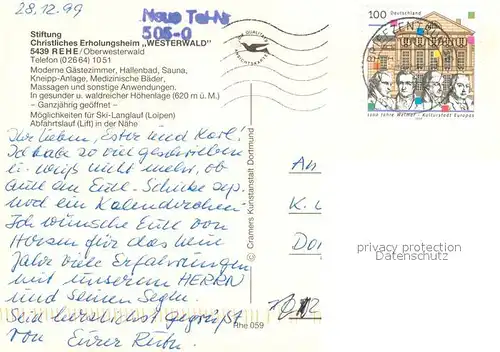 28.12.99
Neue Tel-Nr.
505-0
Stiftung
Christliches Erholungsheim „WESTERWALD"
5439 REHE/Oberwesterwald
Telefon (02664) 1051
Moderne Gästezimmer, Hallenbad, Sauna,
Kneipp-Anlage, Medizinische Bäder,
Massagen und sonstige Anwendungen.
In gesunder u. waldreicher Höhenlage (620 m ü. M.)
– Ganzjährig geöffnet –
Möglichkeiten für Ski-Langlauf (Loipen)
Abfahrtslauf (Lift) in der Nähe
Ihr Lieben, Ester und Karl!
Ich habe so viel geschrieben
u. weiß nicht mehr, ob
ich Eure
noch ein Kalenderchen
Ich wünsche Euch von
Herzen für das neue
Jahr viele Erfahrungen
mit unserem HERRN
und seinen Segen.
Seid herzlichst gegrüßt
von Eurer Ruth.
© Cramers Kunstanstalt Dortmund
Rhe 059
100 Deutschland
1100 Jahre Weimar / Kulturstadt Europas
BRIEFZENTRUM
An
K.
Do
privacy protection
watermark